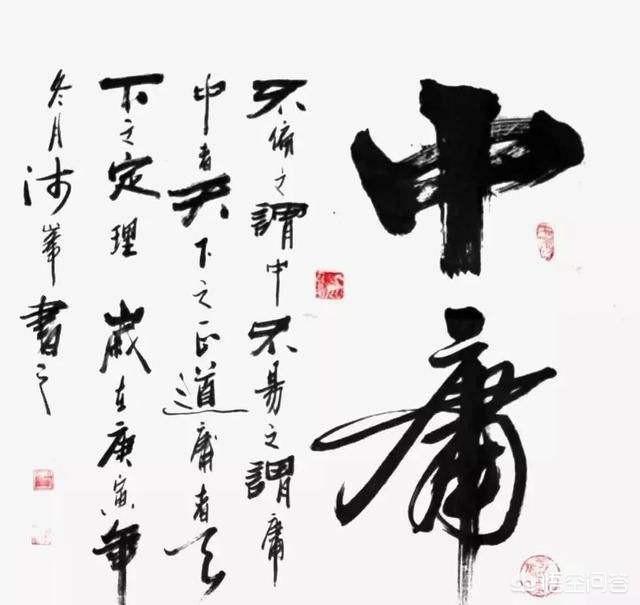 中庸
不偏之謂中不易之謂庸
中者天下之正道庸者天
下之定理 歲在庚寅年
冬月沛峯書之
悟空问答